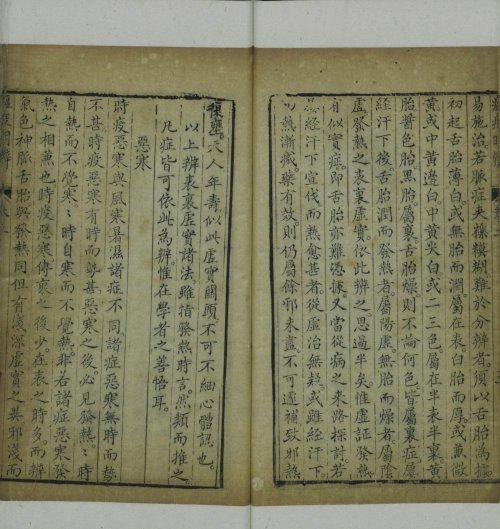 易施治若脈症夹襍糢糊難于分辨者須以舌胎
初起舌胎薄白或無胎而潤屬在表白胎而厚或兼微
黄或中黄邊白中黄尖白或二三色屬在半表半裏黄
胎醬色胎黑胎屬裏舌胎燥則不論何色皆屬裏症屢
經汗下後舌胎潤而發熱者屬陽虛無胎而燥者屬陰
虛發熱之表裏虛實依此辨之思過半矣惟虛証發熱
有似實症即舌胎亦難憑據又當從病之来路探討若
屡經汗下宣伐而熱愈甚者從虛治無救或雖經汗下
熱漸減藥有效則仍屬餘邪未盡不可遽補致邪熱
復壅夭人年壽似此虛實關頭不可不細心體認也
以上辨表裏虛實諸法雖指發熱時言然類而推之
凡症皆可依此為辨惟在學者之善悟耳
惡寒
時疫惡寒與風寒暑濕諸症不同諸症惡寒無時而勢
不甚時疫惡寒有時而勢甚惡寒之後必見發熱時
自熱而不覺寒寒時自寒而不覺熱非若諸症惡寒發
熱之相兼也時疫惡寒傳裏之後少在表之時多而辨
氣色神脈舌胎與發熱同但有淺深虛實之異邪淺而